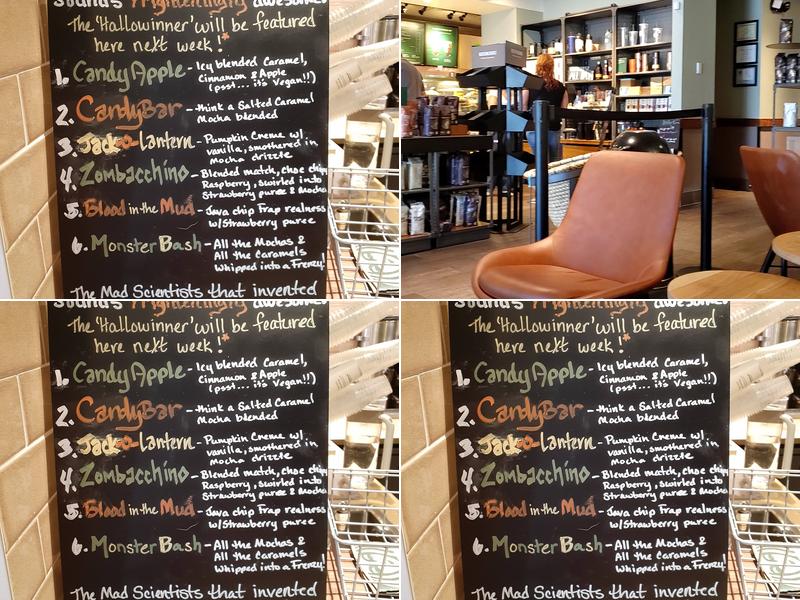 Sounds Frighteningly awesome!
The 'Hallowinner' will be featured
here next week!*
1. Candy Apple - Icy blended Caramel,
Cinnamon & Apple
(psst... it's Vegan!!)
2. CandyBar - think a Salted Caramel
Mocha blended
3. Jack-o-lantern - Pumpkin Creme w/
vanilla, smothered in
Mocha drizzle
4. Zombacchino - Blended match, choc chip,
Raspberry, swirled into
Strawberry puree & Mocha
5. Blood in the Mud - Java chip Frap realness
w/Strawberry puree
6. Monster Bash - All the Mochas &
All the Caramels
Whipped into a Frenzy!
The Mad Scientists that invented
Sounds Frighteningly awesome!
The 'Hallowinner' will be featured
here next week!*
1. Candy Apple - Icy blended Caramel,
Cinnamon & Apple
(psst... it's Vegan!!)
2. CandyBar - think a Salted Caramel
Mocha blended
3. Jack-o-lantern - Pumpkin Creme w/
vanilla, smothered in
Mocha drizzle
4. Zombacchino - Blended match, choc chip,
Raspberry, swirled into
Strawberry puree & Mocha
5. Blood in the Mud - Java chip Frap realness
w/Strawberry puree
6. Monster Bash - All the Mochas &
All the Caramels
Whipped into a Frenzy!
The Mad Scientists that invented
Sounds Frighteningly awesome!
The 'Hallowinner' will be featured
here next week!*
1. Candy Apple - Icy blended Caramel,
Cinnamon & Apple
(psst... it's Vegan!!)
2. CandyBar - think a Salted Caramel
Mocha blended
3. Jack-o-lantern - Pumpkin Creme w/
vanilla, smothered in
Mocha drizzle
4. Zombacchino - Blended match, choc chip,
Raspberry, swirled into
Strawberry puree & Mocha
5. Blood in the Mud - Java chip Frap realness
w/Strawberry puree
6. Monster Bash - All the Mochas &
All the Caramels
Whipped into a Frenzy!
The Mad Scientists that invented